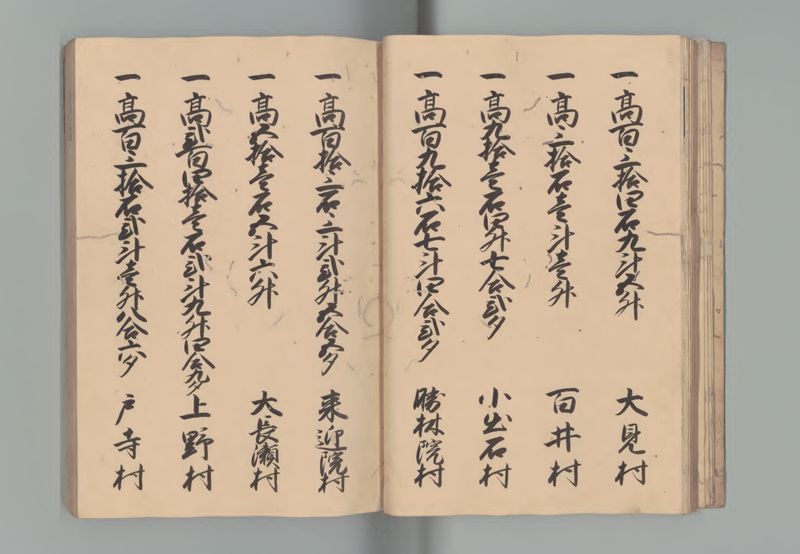 一 高百三拾四石九斗五升 大見村
一 高三拾石壱斗壱升 百井村
一 高九拾壱石四升七合弐夕 小出石村
一 高百九拾六石七斗四合弐夕 勝林院村
一 高百拾三石三斗弐升五合五夕 来迎院村
一 高五拾壱石五斗六升 大長瀬村
一 高弐百四拾壱石弐斗九升四合九夕 上野村
一 高百三拾石弐斗壱升八合六夕 戸寺村